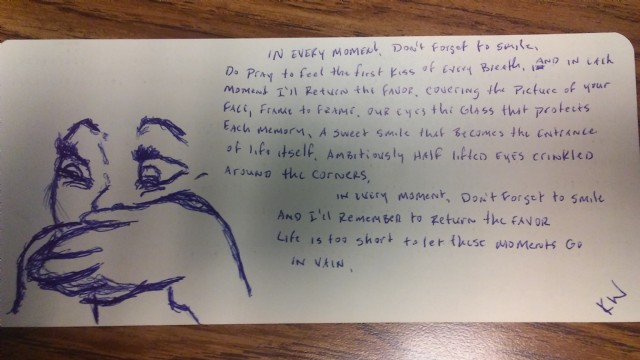 IN EVERY MOMENT, DON'T FORGET TO SMILE,
DO PRAY TO FEEL THE FIRST KISS OF EVERY BREATH, AND IN EACH
MOMENT I'LL RETURN THE FAVOR, COVERING THE PICTURE OF YOUR
FACE, FRAME TO FRAME. OUR EYES THE GLASS THAT PROTECTS
EACH MEMORY, A SWEET SMILE THAT BECOMES THE ENTRANCE
OF LIFE ITSELF. AMBITIOUSLY HALF LIFTED EYES CRINKLED
AROUND THE CORNERS,
IN EVERY MOMENT, DON'T FORGET TO SMILE
AND I'LL REMEMBER TO RETURN THE FAVOR
LIFE IS TOO SHORT TO LET THESE MOMENTS GO
IN VAIN.
KW